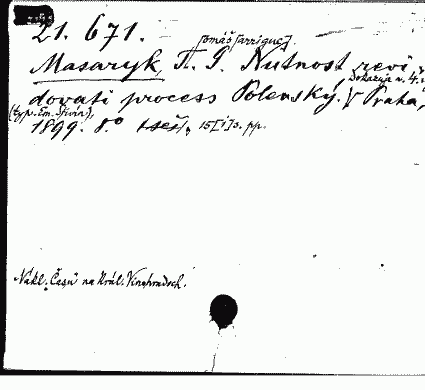 21. 671.
Tomáš Garrigue].
Masaryk, T. G. Nutnost revi-
Dokazuje
dovati process Polenský. Praha,
(typ. Em. Stivín),
1899. 8.° 1 seš., 15[1]s. pp.
Nákl. Času na Král. Vinohradech.